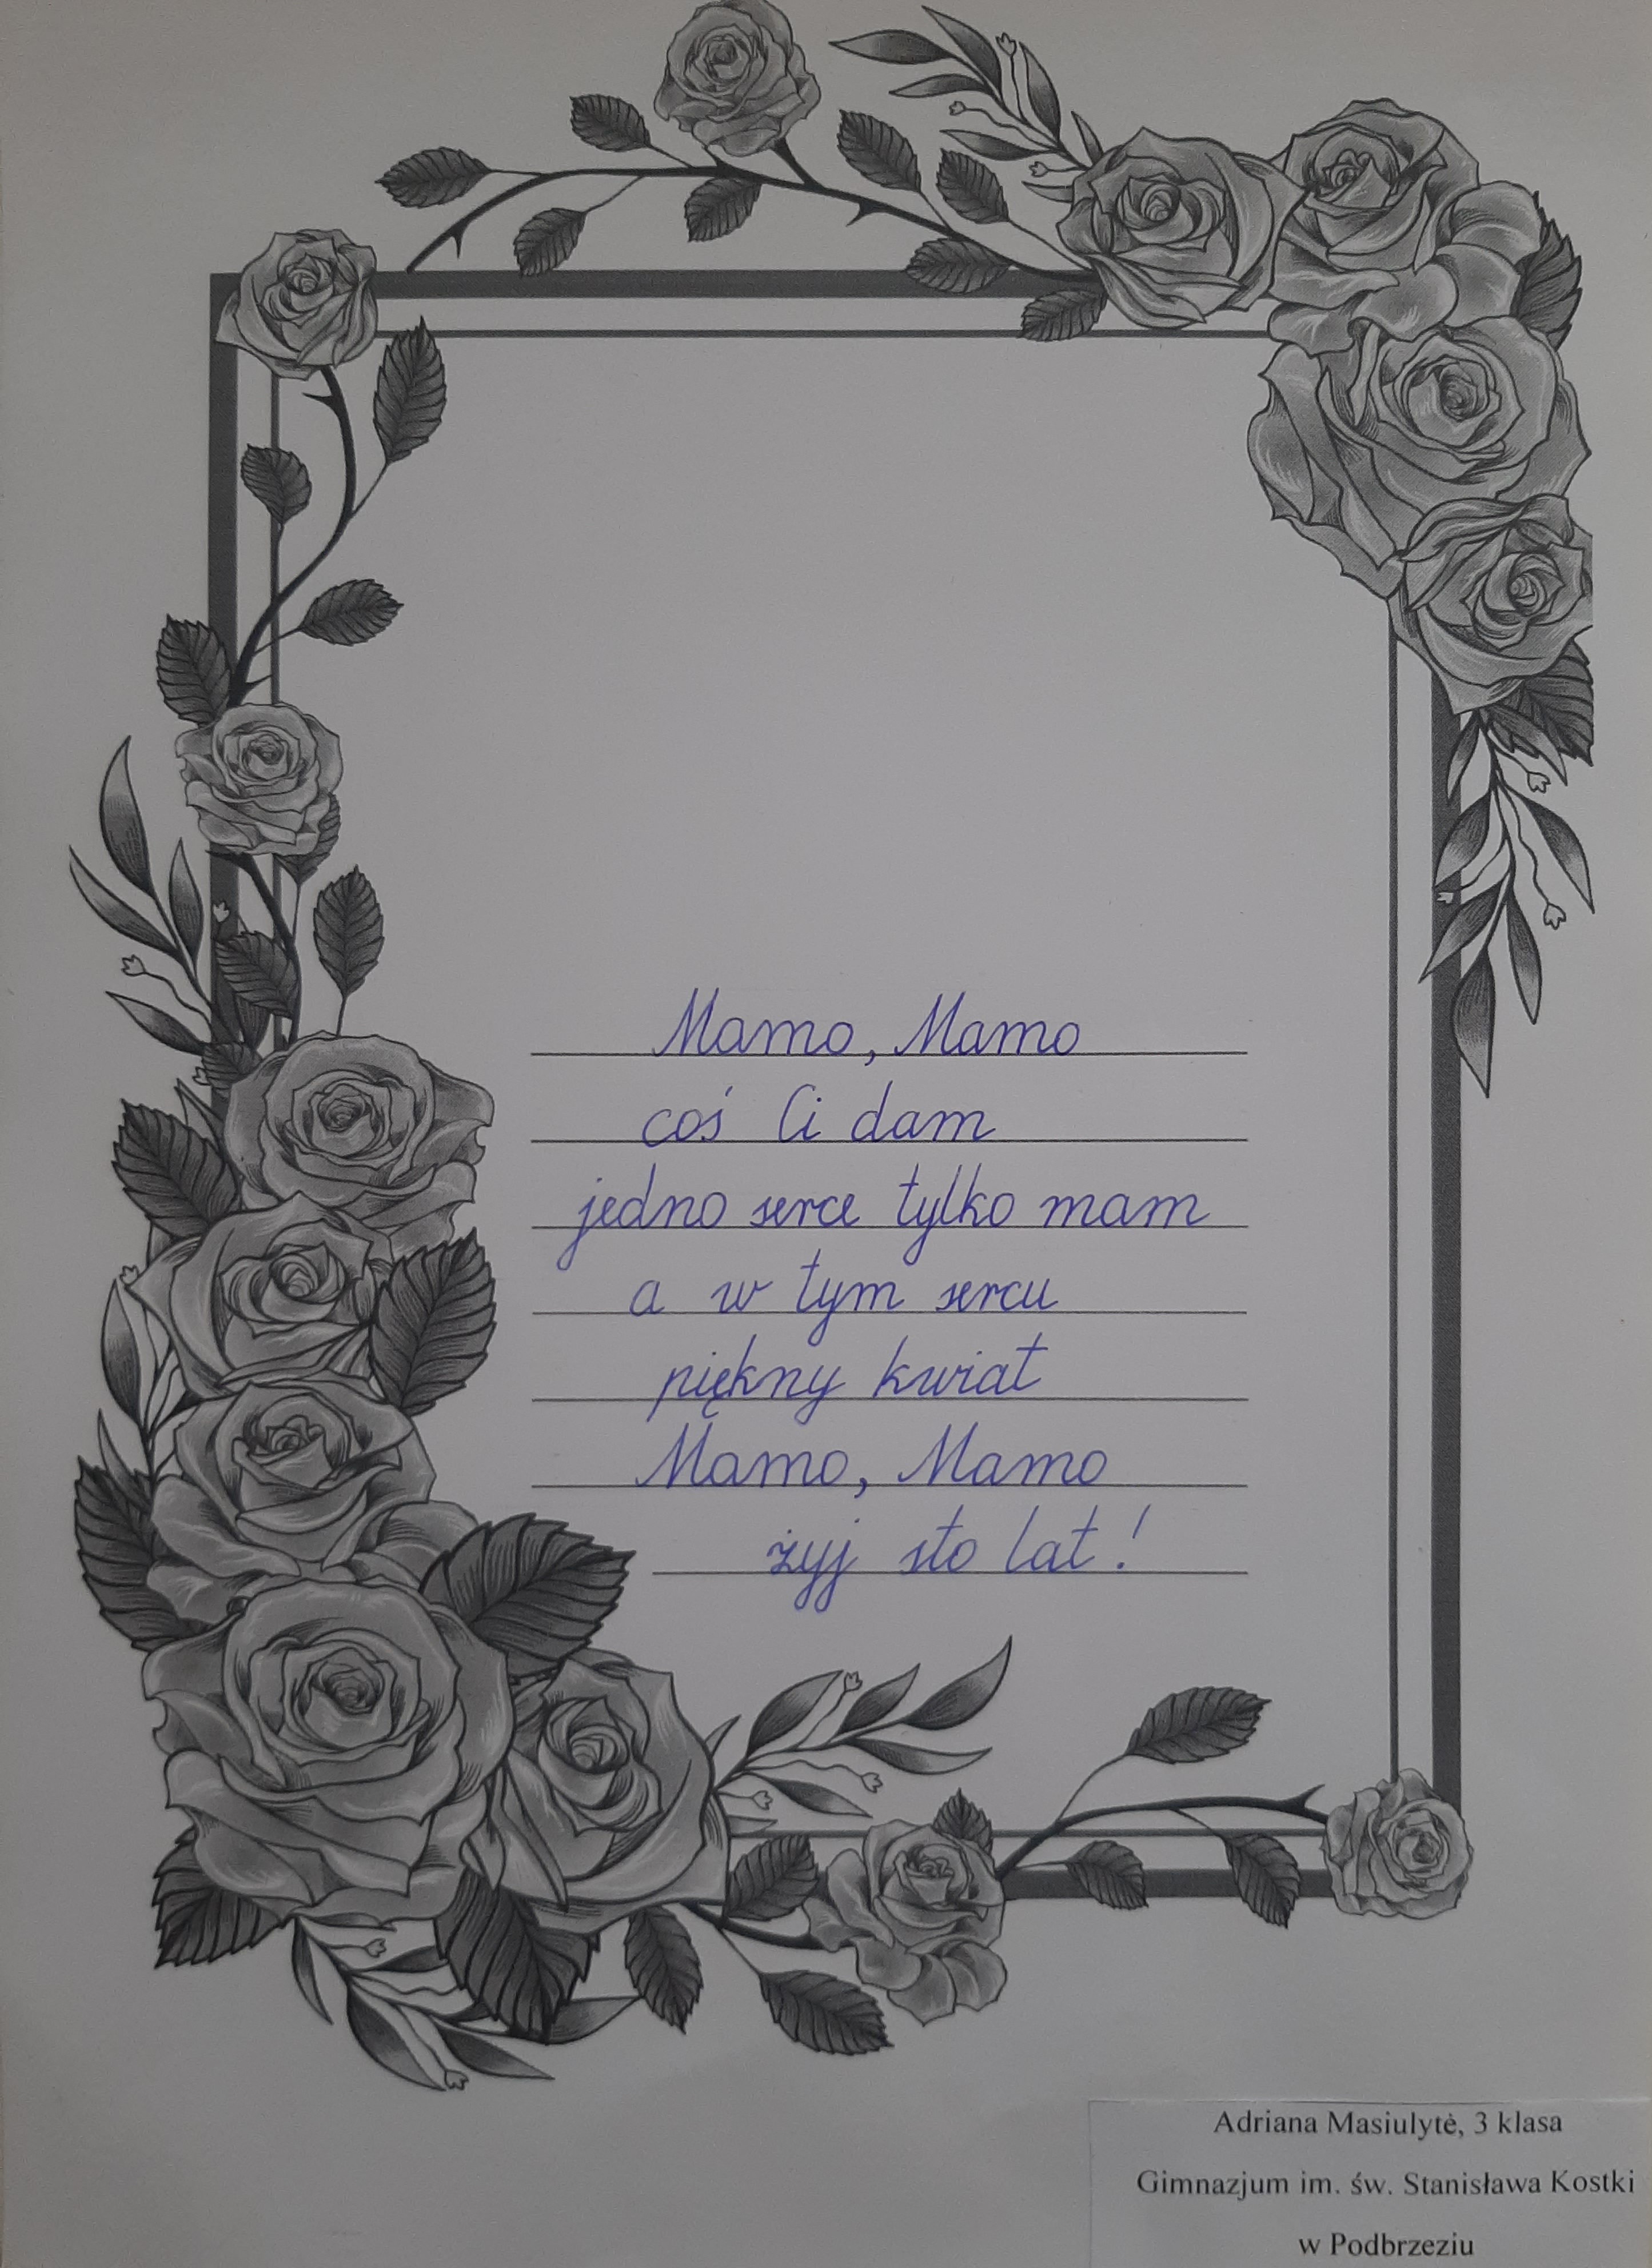 Mamo, Mamo
coś Ci dam
jedno serce tylko mam
a w tym sercu
piękny kwiat
Mamo, Mamo
żyj sto lat!
Adriana Masiulytė, 3 klasa
Gimnazjum im. św. Stanisława Kostki
w Podbrzeziu